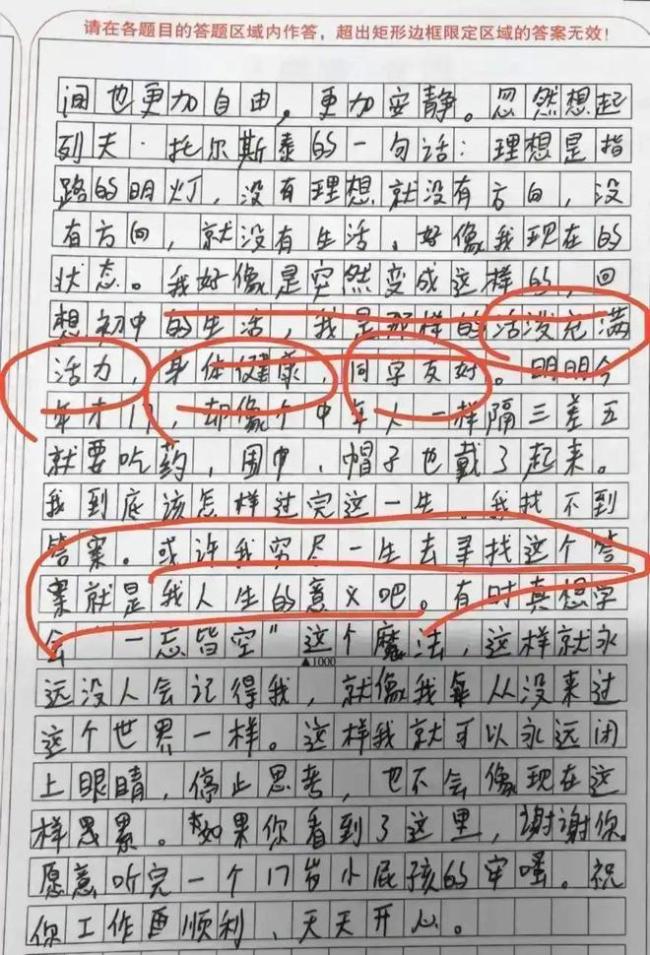 请在各题目的答题区域内作答，超出矩形边框限定区域的答案无效！
间也更加自由，更加安静。忽然想起
列夫·托尔斯泰的一句话：理想是指
路的明灯，没有理想就没有方向，没
有方向，就没有生活，好像我现在的
状态。我好像是突然变成这样的，回
想初中的生活，我是那样的活泼充满
活力，身体健康，同学友好。明明今
年才17，却像个中年人一样隔三差五
就要吃药，围巾、帽子也戴了起来。
我到底该怎样过完这一生。我找不到
答案。或许我穷尽一生去寻找这个答
案就是我人生的意义吧。有时真想学
会"一忘皆空"这个魔法，这样就永
▲1000
远没人会记得我，就像我从没来过
这个世界一样。这样我就可以永远闭
上眼睛，停止思考，也不会像现在这
样累。如果你看到了这里，谢谢你
愿意听完一个17岁小屁孩的牢骚。祝
你工作顺利，天天开心。